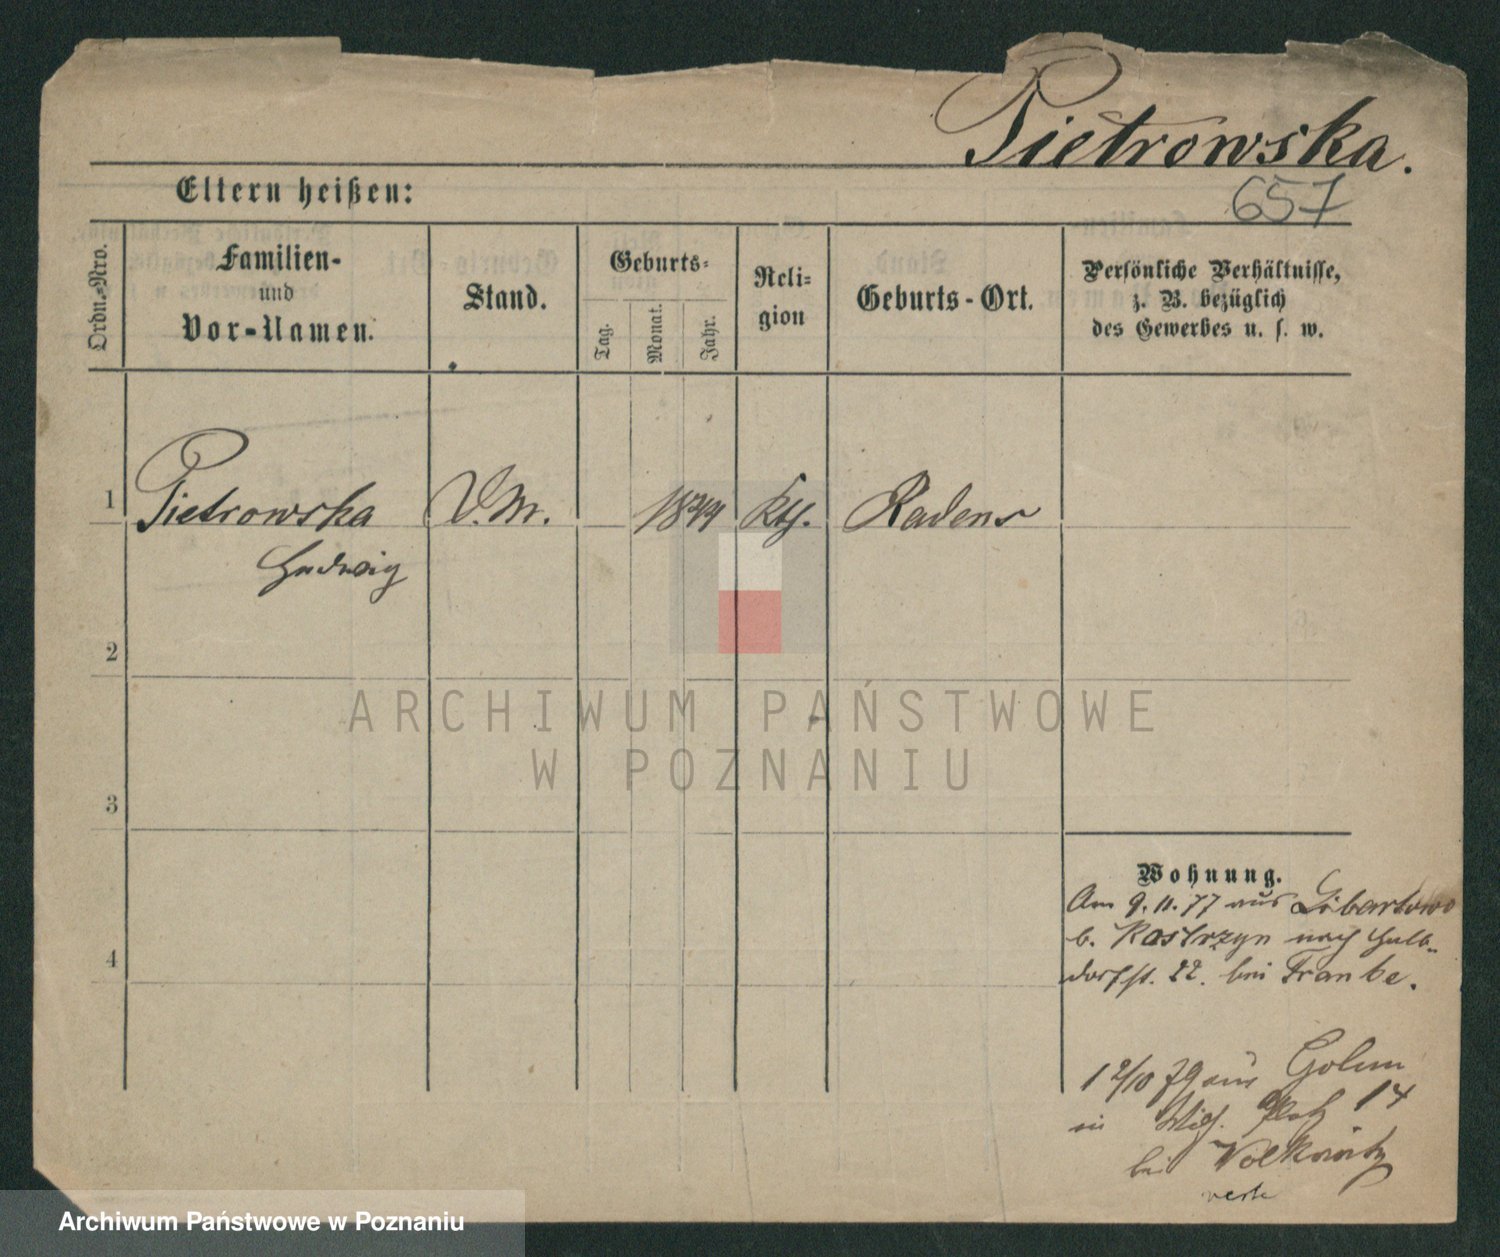 Pietrowska.
657
Eltern heißen:
Ordn.-Nro.
Familien-
und
Vor-Namen.
Stand.
Geburts-
Tag.
Monat.
Jahr.
Reli-
gion
Geburts-Ort.
Persönliche Verhältnisse,
z. B. bezüglich
des Gewerbes u. s. w.
1
Pietrowska
Hedwig
1844
Kth.
2
3
4
Wohnung.
Am 9. 11. 77 aus Libartowo
b. Kostrzyn nach Halb-
dorfst. 22. bei Franke.
12/10 79 aus
in Wilh. Platz 14
bei
verte
ARCHIWUM PAŃSTWOWE
W POZNANIU
Archiwum Państwowe w Poznaniu